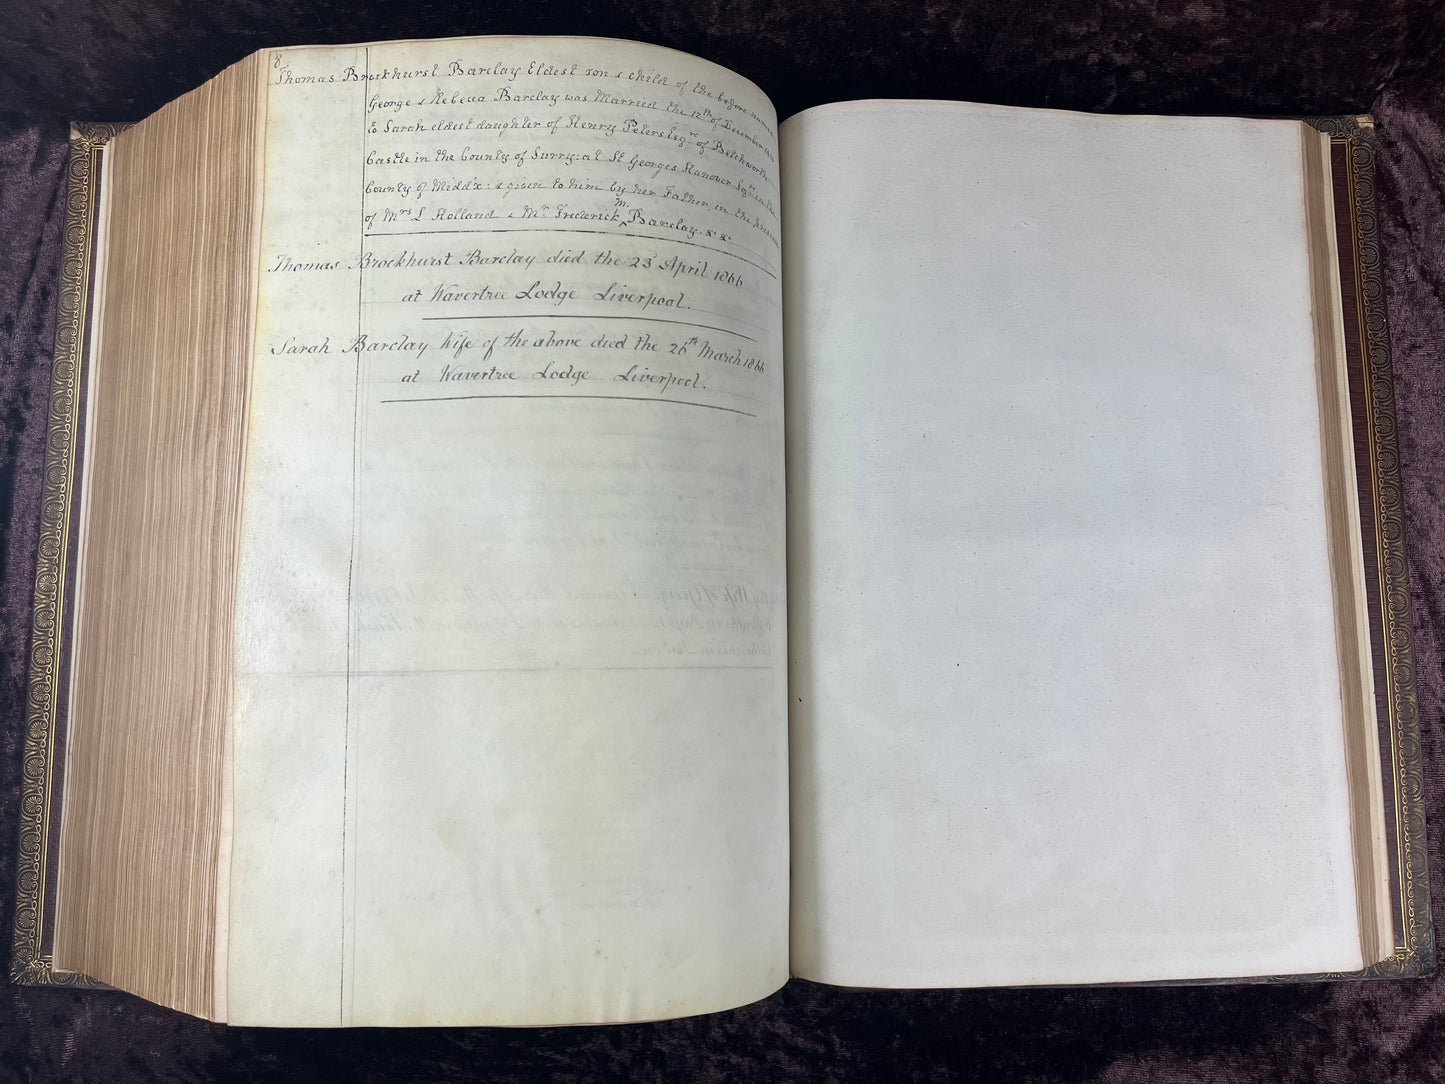 8
Thomas Brockhurst Barclay Eldest son & child of the before-named
George & Rebecca Barclay was Married the 12th of December
to Sarah eldest daughter of Henry Peters Esqr. of Betchworth
Castle in the County of Surry: at St Georges Hanover Sqr. in the
County of Middx: & given to him by her Father, in the presence
of Mrs L Holland & Mr Frederick m. Barclay &c &c
Thomas Brockhurst Barclay died the 23d April 1866
at Wavertree Lodge Liverpool.
Sarah Barclay Wife of the above died the 26th March 1866
at Wavertree Lodge Liverpool.